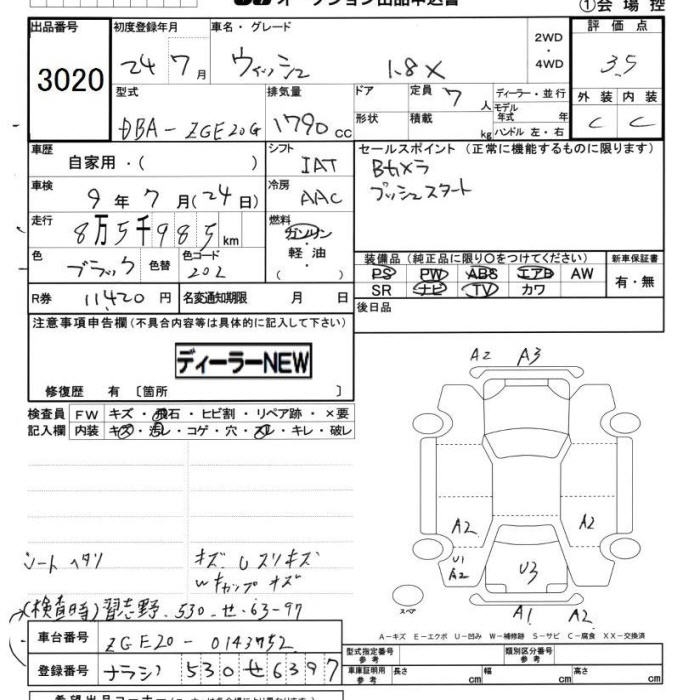 オークション出品申込書
①会場控
出品番号 3020
初度登録年月 24 7月
車名・グレード ウィッシュ 1.8X
2WD・4WD
評価点 3.5
型式 DBA-ZGE20G
排気量 1790cc
ドア
定員 7人
ディーラー・並行
外装 C 内装 C
形状
積載 kg
モデル年式 年
ハンドル 左・右
車歴 自家用・( )
シフト IAT
セールスポイント (正常に機能するものに限ります)
車検 9年7月(24日)
冷房 AAC
Bカメラ
プッシュスタート
走行 8万5千985km
燃料 ガソリン・軽油・( )
色 ブラック 色替
色コード 202
装備品 (純正品に限り○をつけてください)
新車保証書
PS PW ABS エアB AW
有・無
SR ナビ TV カワ
R券 11420円
名変通知期限 月 日
後日品
注意事項申告欄(不具合内容等は具体的に記入して下さい)
ディーラーNEW
修復歴 有 〔箇所 〕
A2 A3
検査員記入欄
FW キズ・飛石・ヒビ割・リペア跡・×要
内装 キズ・汚レ・コゲ・穴・スレ・キレ・破レ
A2 A2
U1
A2
U3
シートヘタリ
キズ Uスリキズ
Wキャップキズ
スペア
A1 A2
(検査時)習志野.530.せ.63-97
A-キズ E-エクボ U-凹み W-補修跡 S-サビ C-腐食 XX-交換済
車台番号 ZGE20-0143752
登録番号 ナラシ 530せ6397
型式指定番号 参考
類別区分番号 参考
車庫証明用 参考 長さ cm 幅 cm 高さ cm